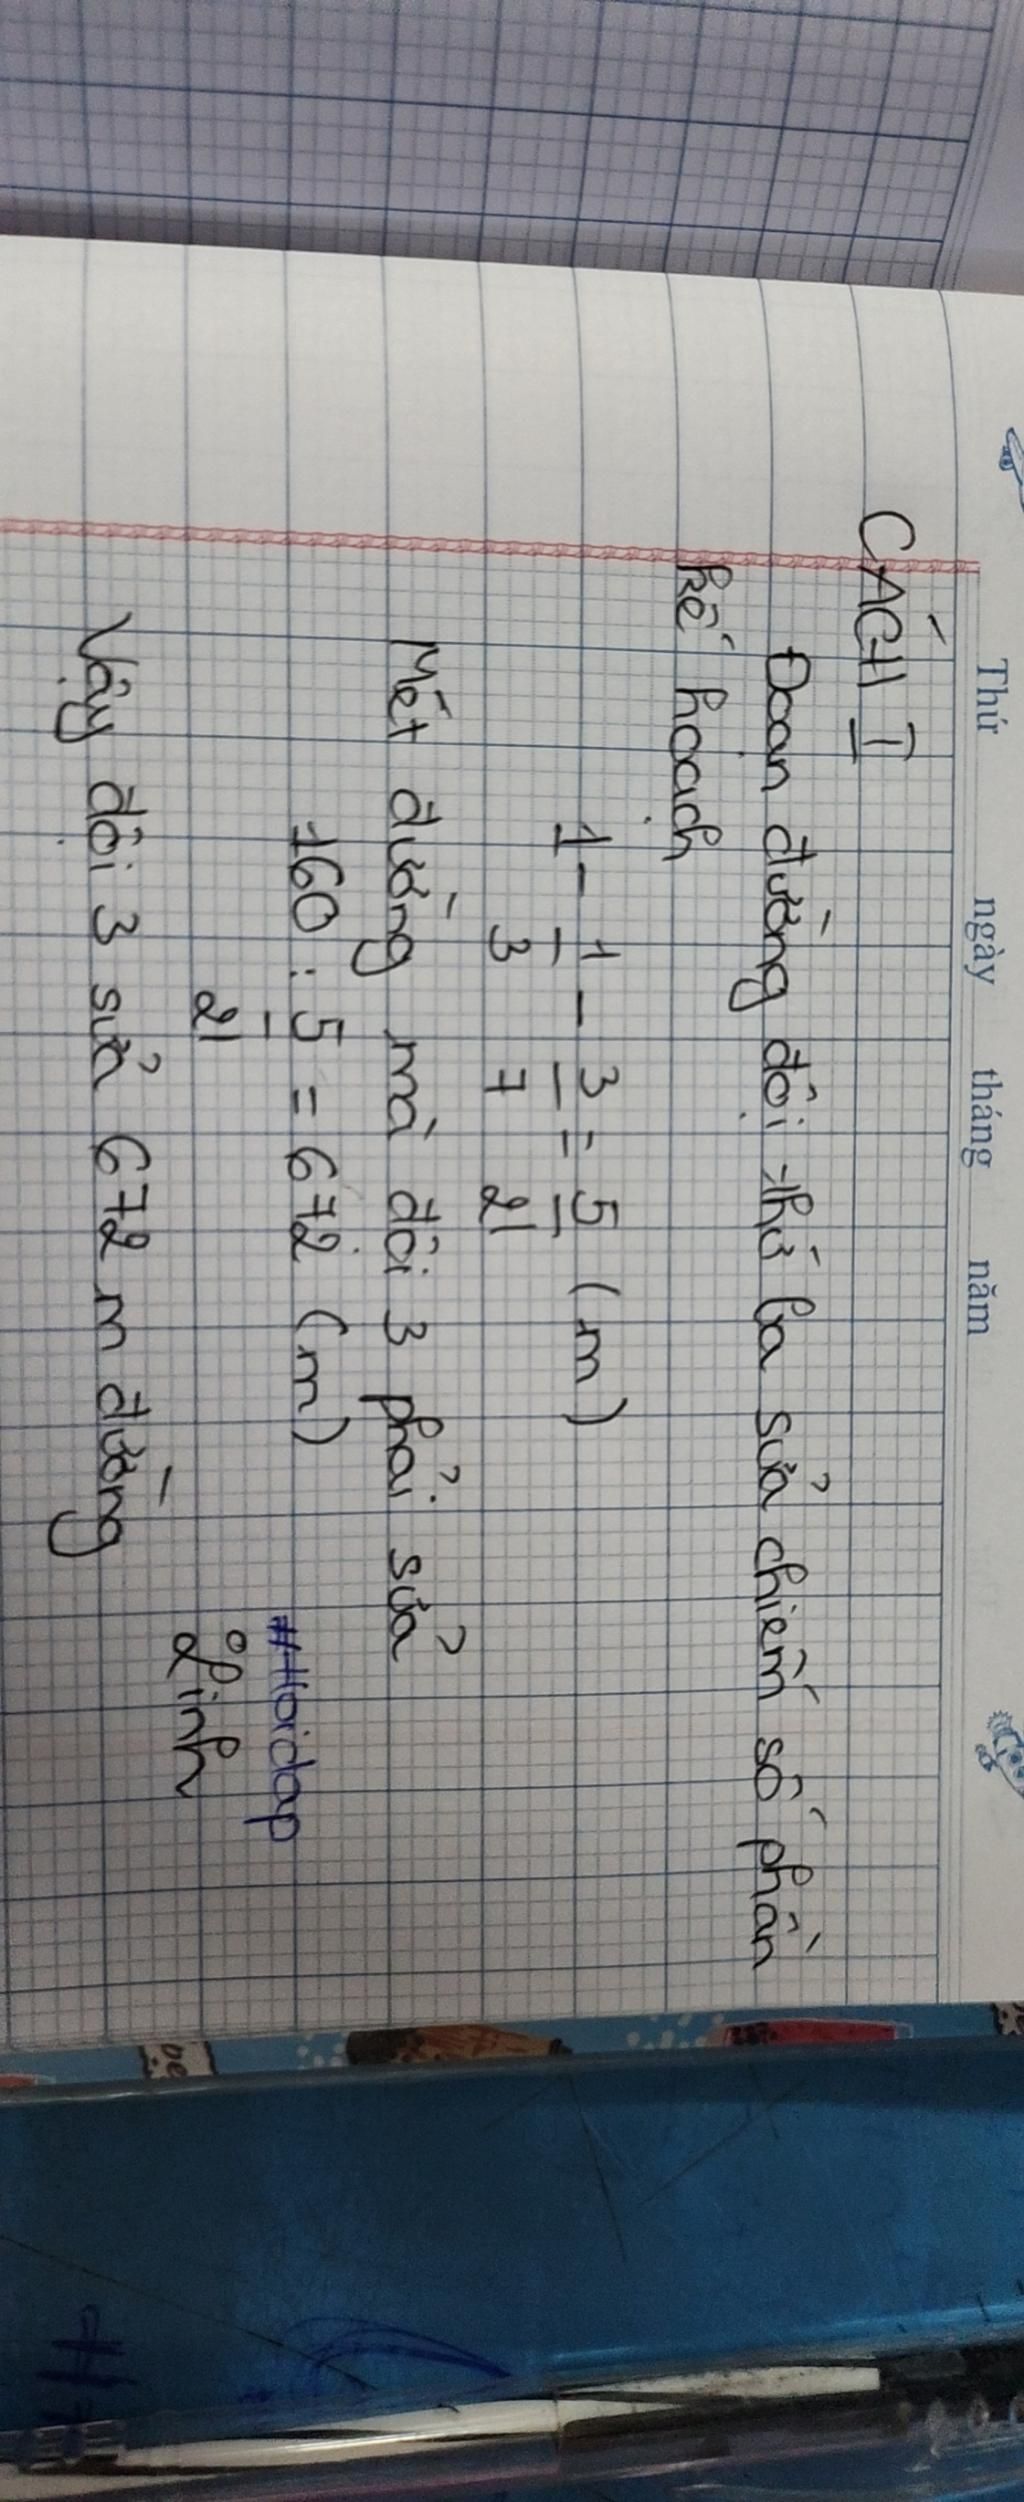 Thứ ngày tháng năm
CÁCH I
Đoạn đường đội thứ ba sửa chiếm số phần
kế hoạch
1 - 1/3 - 3/7 = 5/21 (m)
Mét đường mà đội 3 phải sửa
160 : 5/21 = 672 (m)
#Hoidap
Linh
Vậy đội 3 sửa 672 m đường